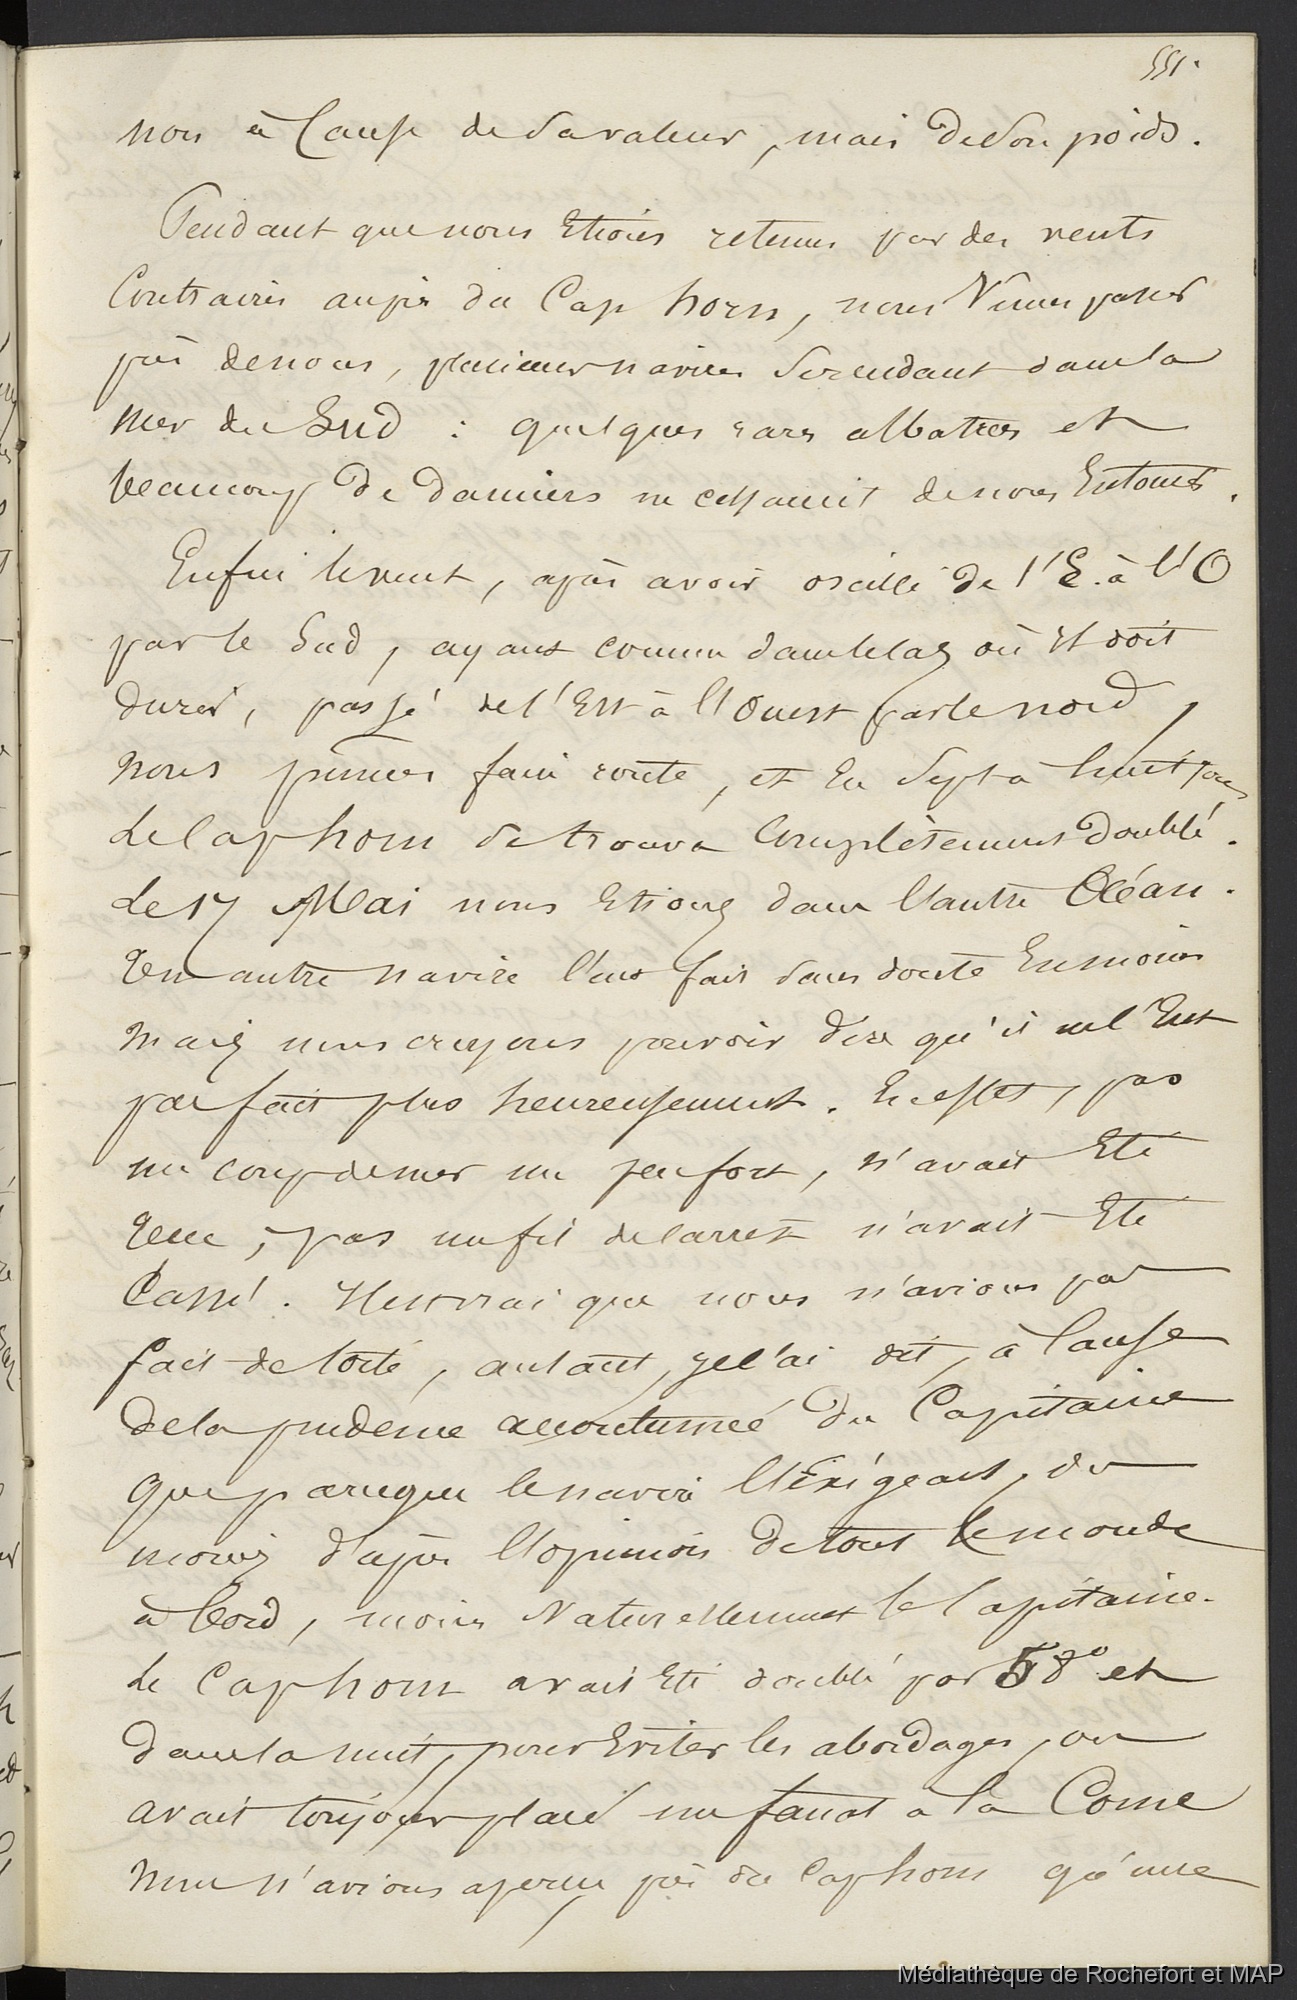 551.
non à Cause de sa valeur, mais de son poids.
Pendant que nous Etions retenus par des vents
Contraires auprès du Cap horn, nous Vimes passer
près de nous, plusieurs navires se rendant dans la
mer du Sud : quelques rares albatros et
beaucoup de damiers ne cessaient de nous Entourer.
Enfin le vent, après avoir oscillé de l'E. à l'O
par le Sud, ayant comme dans le cas où il doit
durer, passé de l'Est à l'Ouest par le nord,
nous pûmes faire route, et En Sept à huit jours
le Cap horn se trouva Complètement doublé.
Le 17 Mai nous Etions dans l'autre Océan.
Un autre navire l'eut fait sans doute En moins
mais nous croyons pouvoir dire qu'il ne l'Eut
pas fait plus heureusement. En effet, pas
un coup de mer un peu fort, n'avait Eté
reçu, pas un fil de carret n'avait Eté
Cassé. Il est vrai que nous n'avions pas
fait de toile, autant, je l'ai dit, à Cause
de la prudence accoutumée du Capitaine
que parceque le navire l'Exigeait, du
moins d'après l'opinion de tout le monde
à bord, moins Naturellement le Capitaine.
Le Cap horn avait Eté doublé par 58° et
dans la nuit, pour Eviter les abordages, on
avait toujours placé un fanal à la Corne
nous n'avions aperçu près du Cap horn qu'une
Médiathèque de Rochefort et MAP